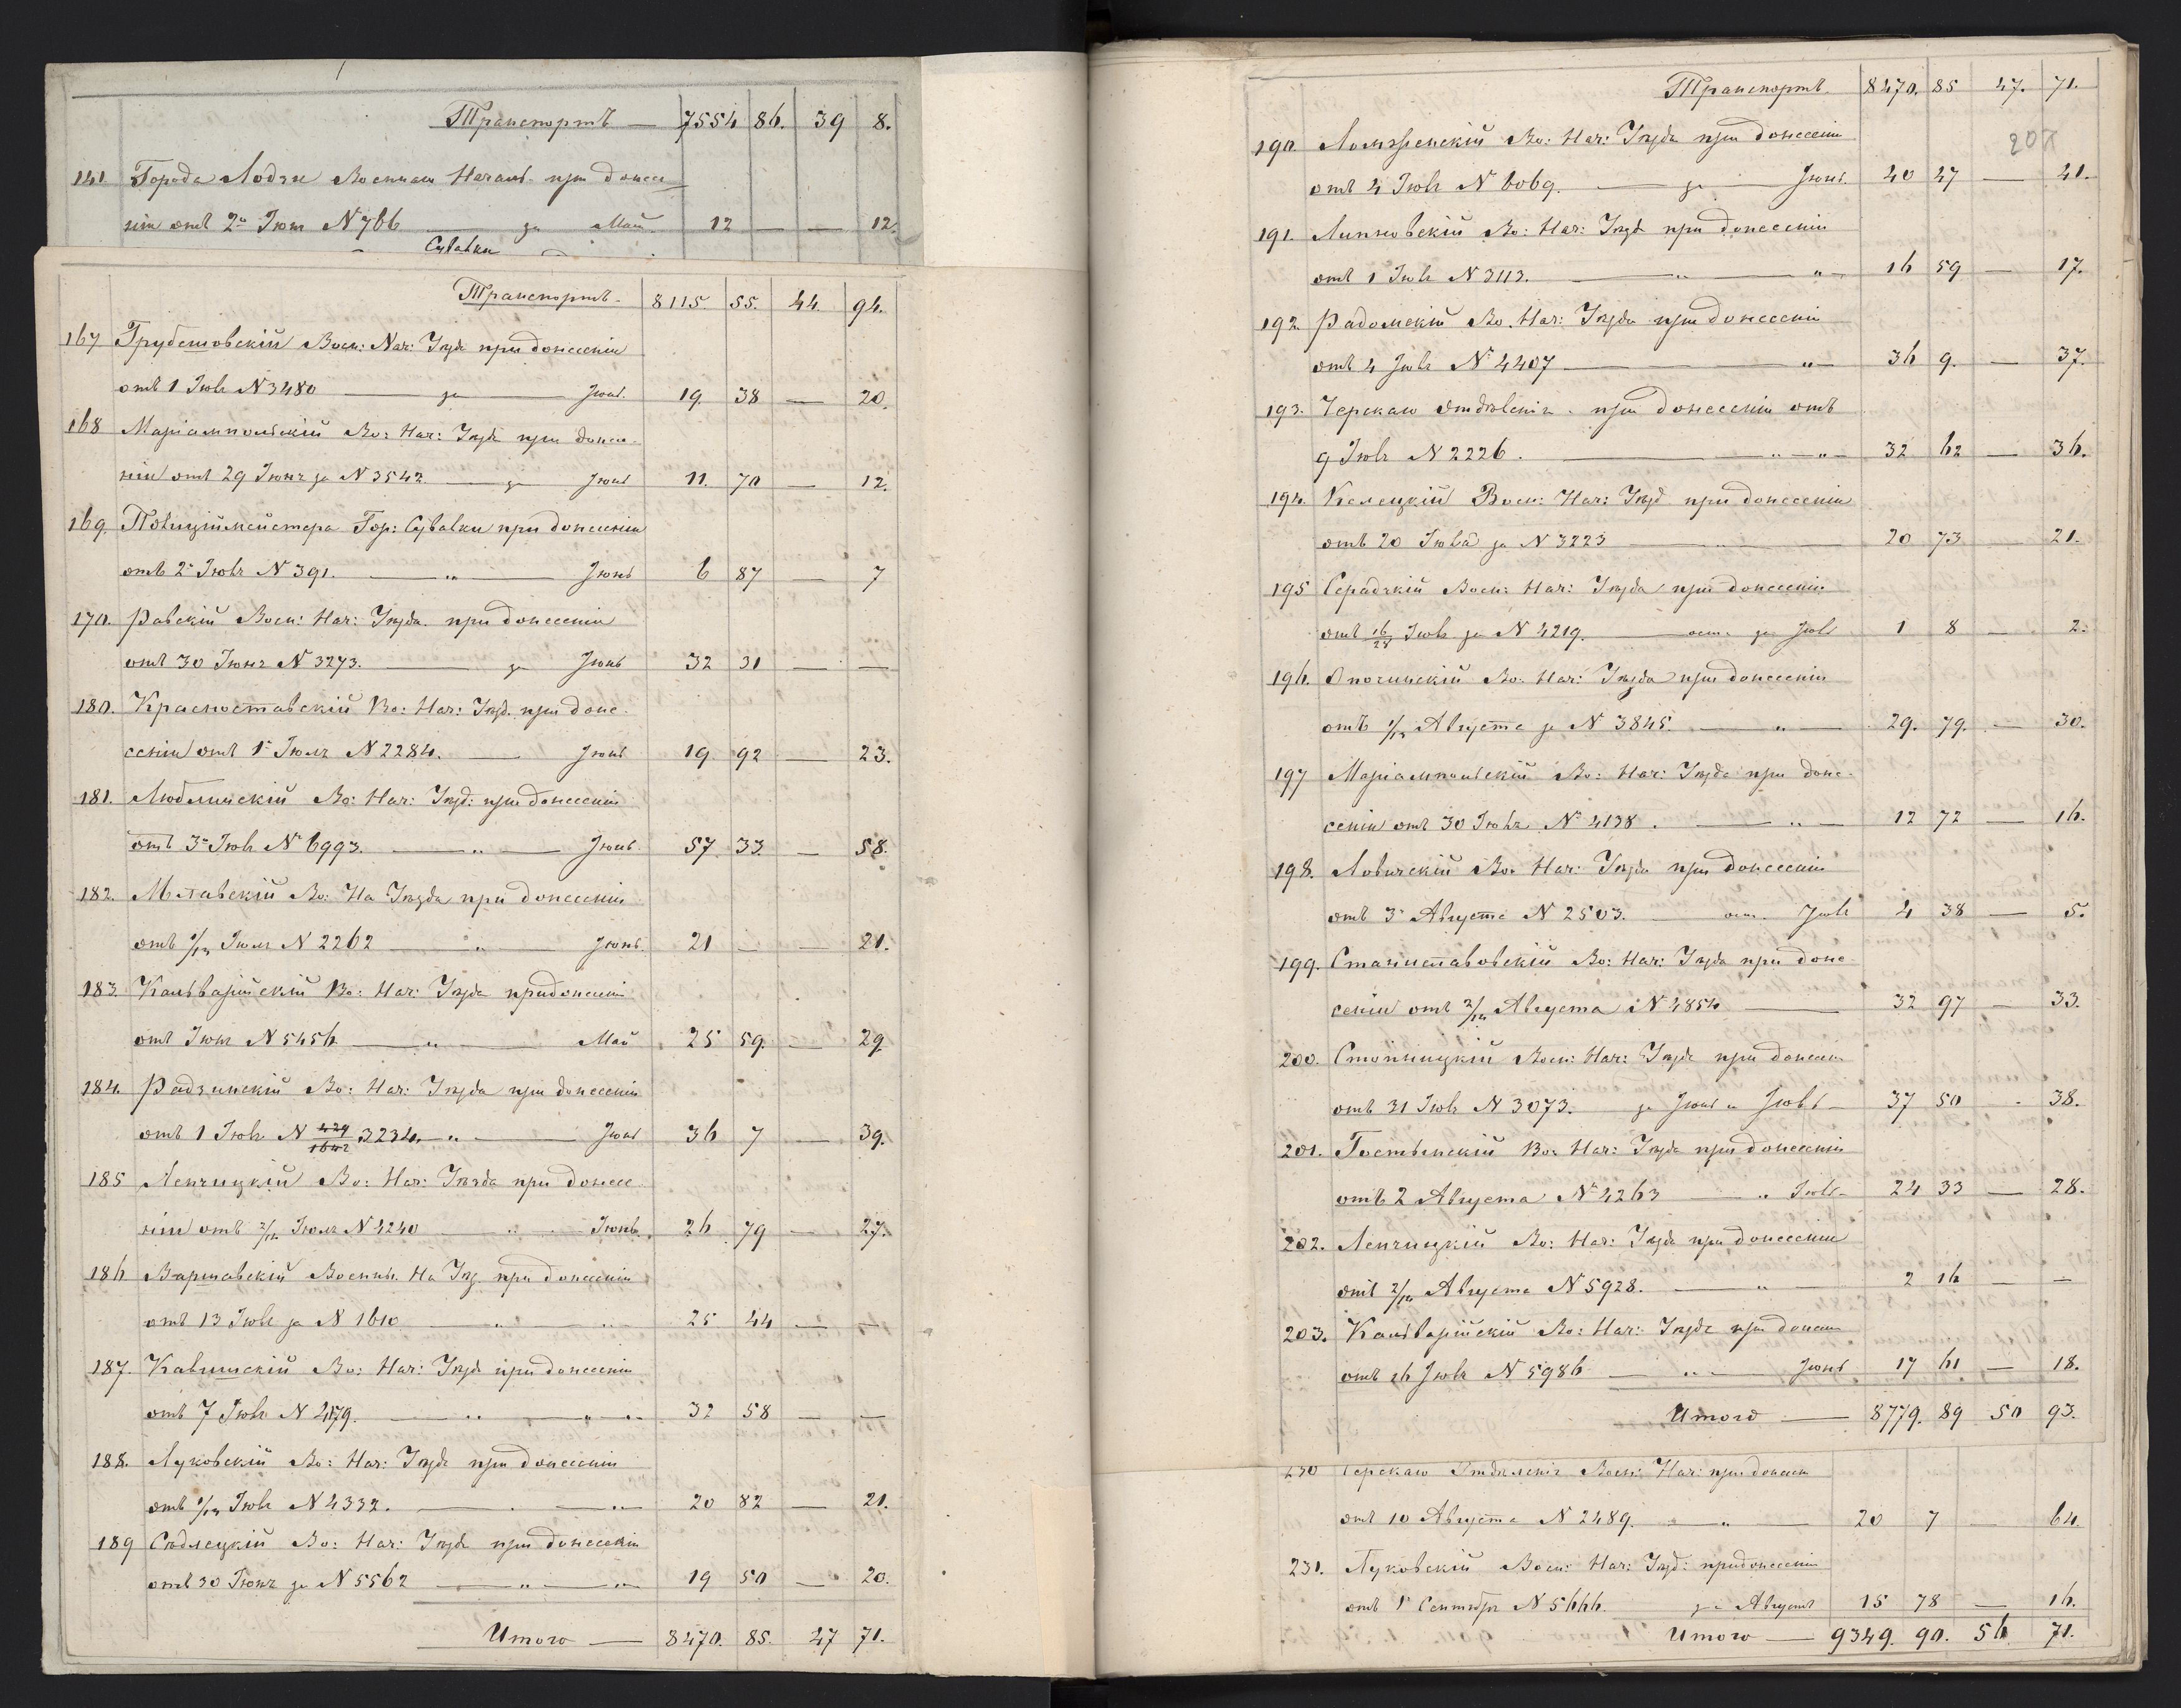 Транспортъ — 7554 86. 39 8.
141 Города Лодзи Военнаго Начал. при донесе
ніи отъ 2го Іюня N 766 — за Май 12 — — 12.
Сувалки
Транспортъ. 8115. 55. 44. 94.
167 Грубешовскій Воен: Нач: Уѣзда при донесеніи
отъ 1 Іюля N 3480 — за — Іюнь. 19 38 — 20.
168 Маріампольскій Во: Нач: Уѣзда при донесе
ніи отъ 29 Іюня за N 3542 — за Іюнь 11. 70 — 12.
169. Полиціймейстера Гор: Сувалки при донесеніи
отъ 2го Іюля N 391. — " — Іюнь 6 87 — 7
170. Равскій Воен: Нач: Уѣзда при донесеніи
отъ 30 Іюня N 3273. — за Іюнь 32 31 — —
180. Красноставскій Во: Нач: Уѣзд. при доне
сеніи отъ 1го Іюля N 2284. — Іюнь 19 92 — 23.
181. Люблинскій Во: Нач: Уѣзд: при донесеніи
отъ 3го Іюля N 6993. — " — Іюнь 57 33 — 58.
182. Млавскій Во: На Уѣзда при донесеніи
отъ 1/13 Іюля N 2262 — " — Іюнь 21 — — 21.
183. Кальварійскій Во: Нач: Уѣзда при донесеніи
отъ Іюня N 5456 — " — Май 25 59. — 29
184. Радзинскій Во: Нач: Уѣзда при донесеніи
отъ 1 Іюля N 3234. — " — Іюнь 36 7 — 39.
185 Ленчицкій Во: Нач: Уѣзда при донесе
ніи отъ 2/14 Іюля N 4240 — " — Іюнь 26 79 — 27.
186 Варшавскій Военн. На Уѣз. при донесеніи
отъ 13 Іюля за N 1610 — " — " 25 44 — —
187. Калишскій Во: Нач: Уѣзда при донесеніи
отъ 7 Іюля N 4179. — " — " 32 58 — —
188. Луковскій Во: Нач: Уѣзда при донесеніи
отъ 1/13 Іюля N 4332. — — " 20 82 — 21.
189 Сѣдлецкій Во: Нач: Уѣзда при донесеніи
отъ 30 Іюня за N 5562 — " — " 19 50 — 20.
Итого — 8470. 85. 47 71.
Транспортъ. 8470. 85 47. 71.
190. Ломжинскій Во: Нач: Уѣзда при донесеніи
отъ 4 Іюля N 6069. — за — Іюнь. 40 47 — 41.
191. Липновскій Во: Нач: Уѣзда при донесеніи
отъ 1 Іюля N 3113. — " — " 16 59 — 17.
192. Радомскій Во. Нач: Уѣзда при донесеніи
отъ 4 Іюля N 4407 — " 36 9. — 37.
193. Черскаго Отдѣленія при донесеніи отъ
9 Іюля N 2226. — " — " 32 62 — 36.
194. Келецкій Воен: Нач: Уѣзд при донесеніи
отъ 20 Іюля за N 3223 — " — 20 73 — 21.
195 Серадзкій Воен: Нач: Уѣзда при донесеніи
отъ 16/28 Іюля за N 4219. — ост. за Іюль 1 8 — 2.
196. Опочинскій Во: Нач: Уѣзда при донесеніи
отъ 1/13 Августа за N 3845. — " — 29. 79. — 30.
197 Маріампольскій Во: Нач: Уѣзда при доне
сеніи отъ 30 Іюля N 4138. — " — 12 72 — 16.
198. Ловичскій Во: Нач: Уѣзда при донесеніи
отъ 3го Августа N 2503. — ост. Іюль 4 38 — 5.
199. Станиславовскій Во: Нач: Уѣзда при доне
сеніи отъ 2/14 Августа N 4854 — 32 97 — 33.
200. Стопницкій Воен: Нач: Уѣзда при донесен
отъ 31 Іюля N 3073. за Іюнь и Іюль — 37 50 - 38.
201. Гостынскій Во: Нач: Уѣзда при донесеніи
отъ 2 Августа N 4263 — " Іюль — 24 33 — 28.
202. Ленчицкій Во: Нач: Уѣзда при донесеніи
отъ 2/14 Августа N 5928. — " — 2 16 — —
203. Кальварійскій Во: Нач: Уѣзда при донесен
отъ 16 Іюля N 5986 — " — Іюнь 17 61 — 18.
Итого — 8779. 89 50 93.
230 Черскаго Отдѣленія Воен: Нач: при донесен
отъ 10 Августа N 2489. — " — 20 7 — 64.
231. Луковскій Воен: Нач: Уѣзд: при донесеніи
отъ 1го Сентября N 5666. — за Августъ 15 78 — 16.
Итого — 9349. 90. 56 71.